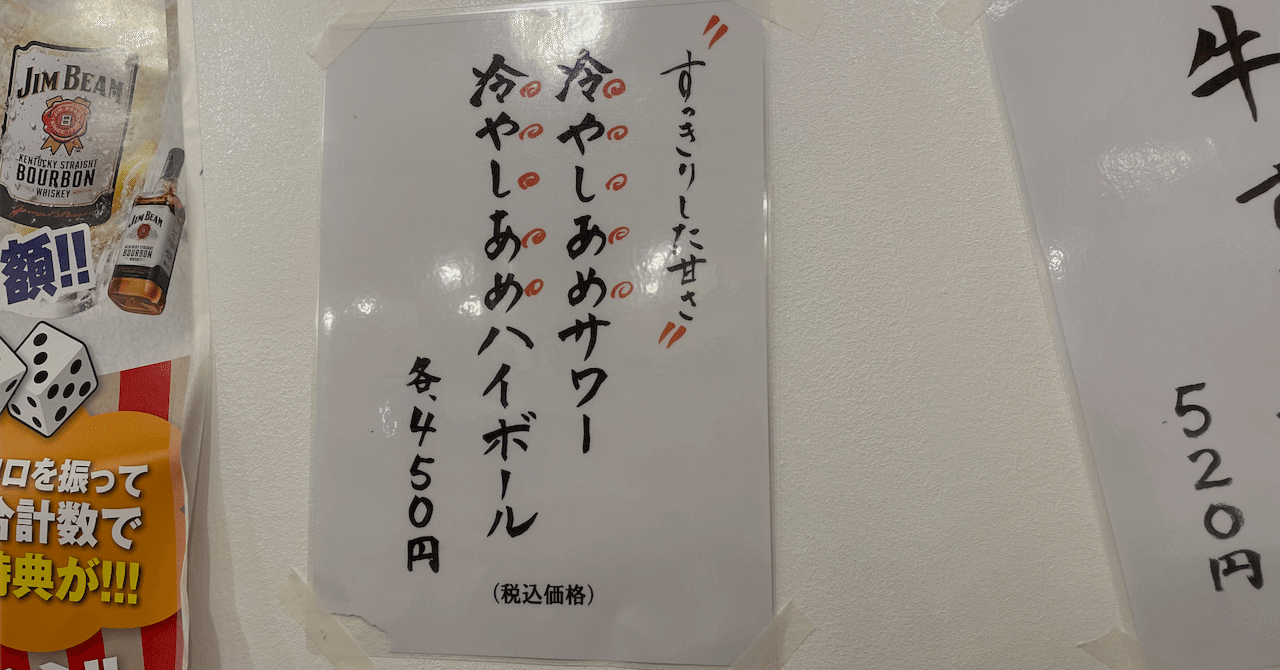 〃すっきりした甘さ〃
冷やしあめサワー
冷やしあめハイボール
各、450円
(税込価格)
JIM BEAM
KENTUCKY STRAIGHT
BOURBON
WHISKEY
JIM BEAM
KENTUCKY STRAIGHT
BOURBON
WHISKEY
額!!
ロを振って
合計数で
特典が!!!
牛
520円